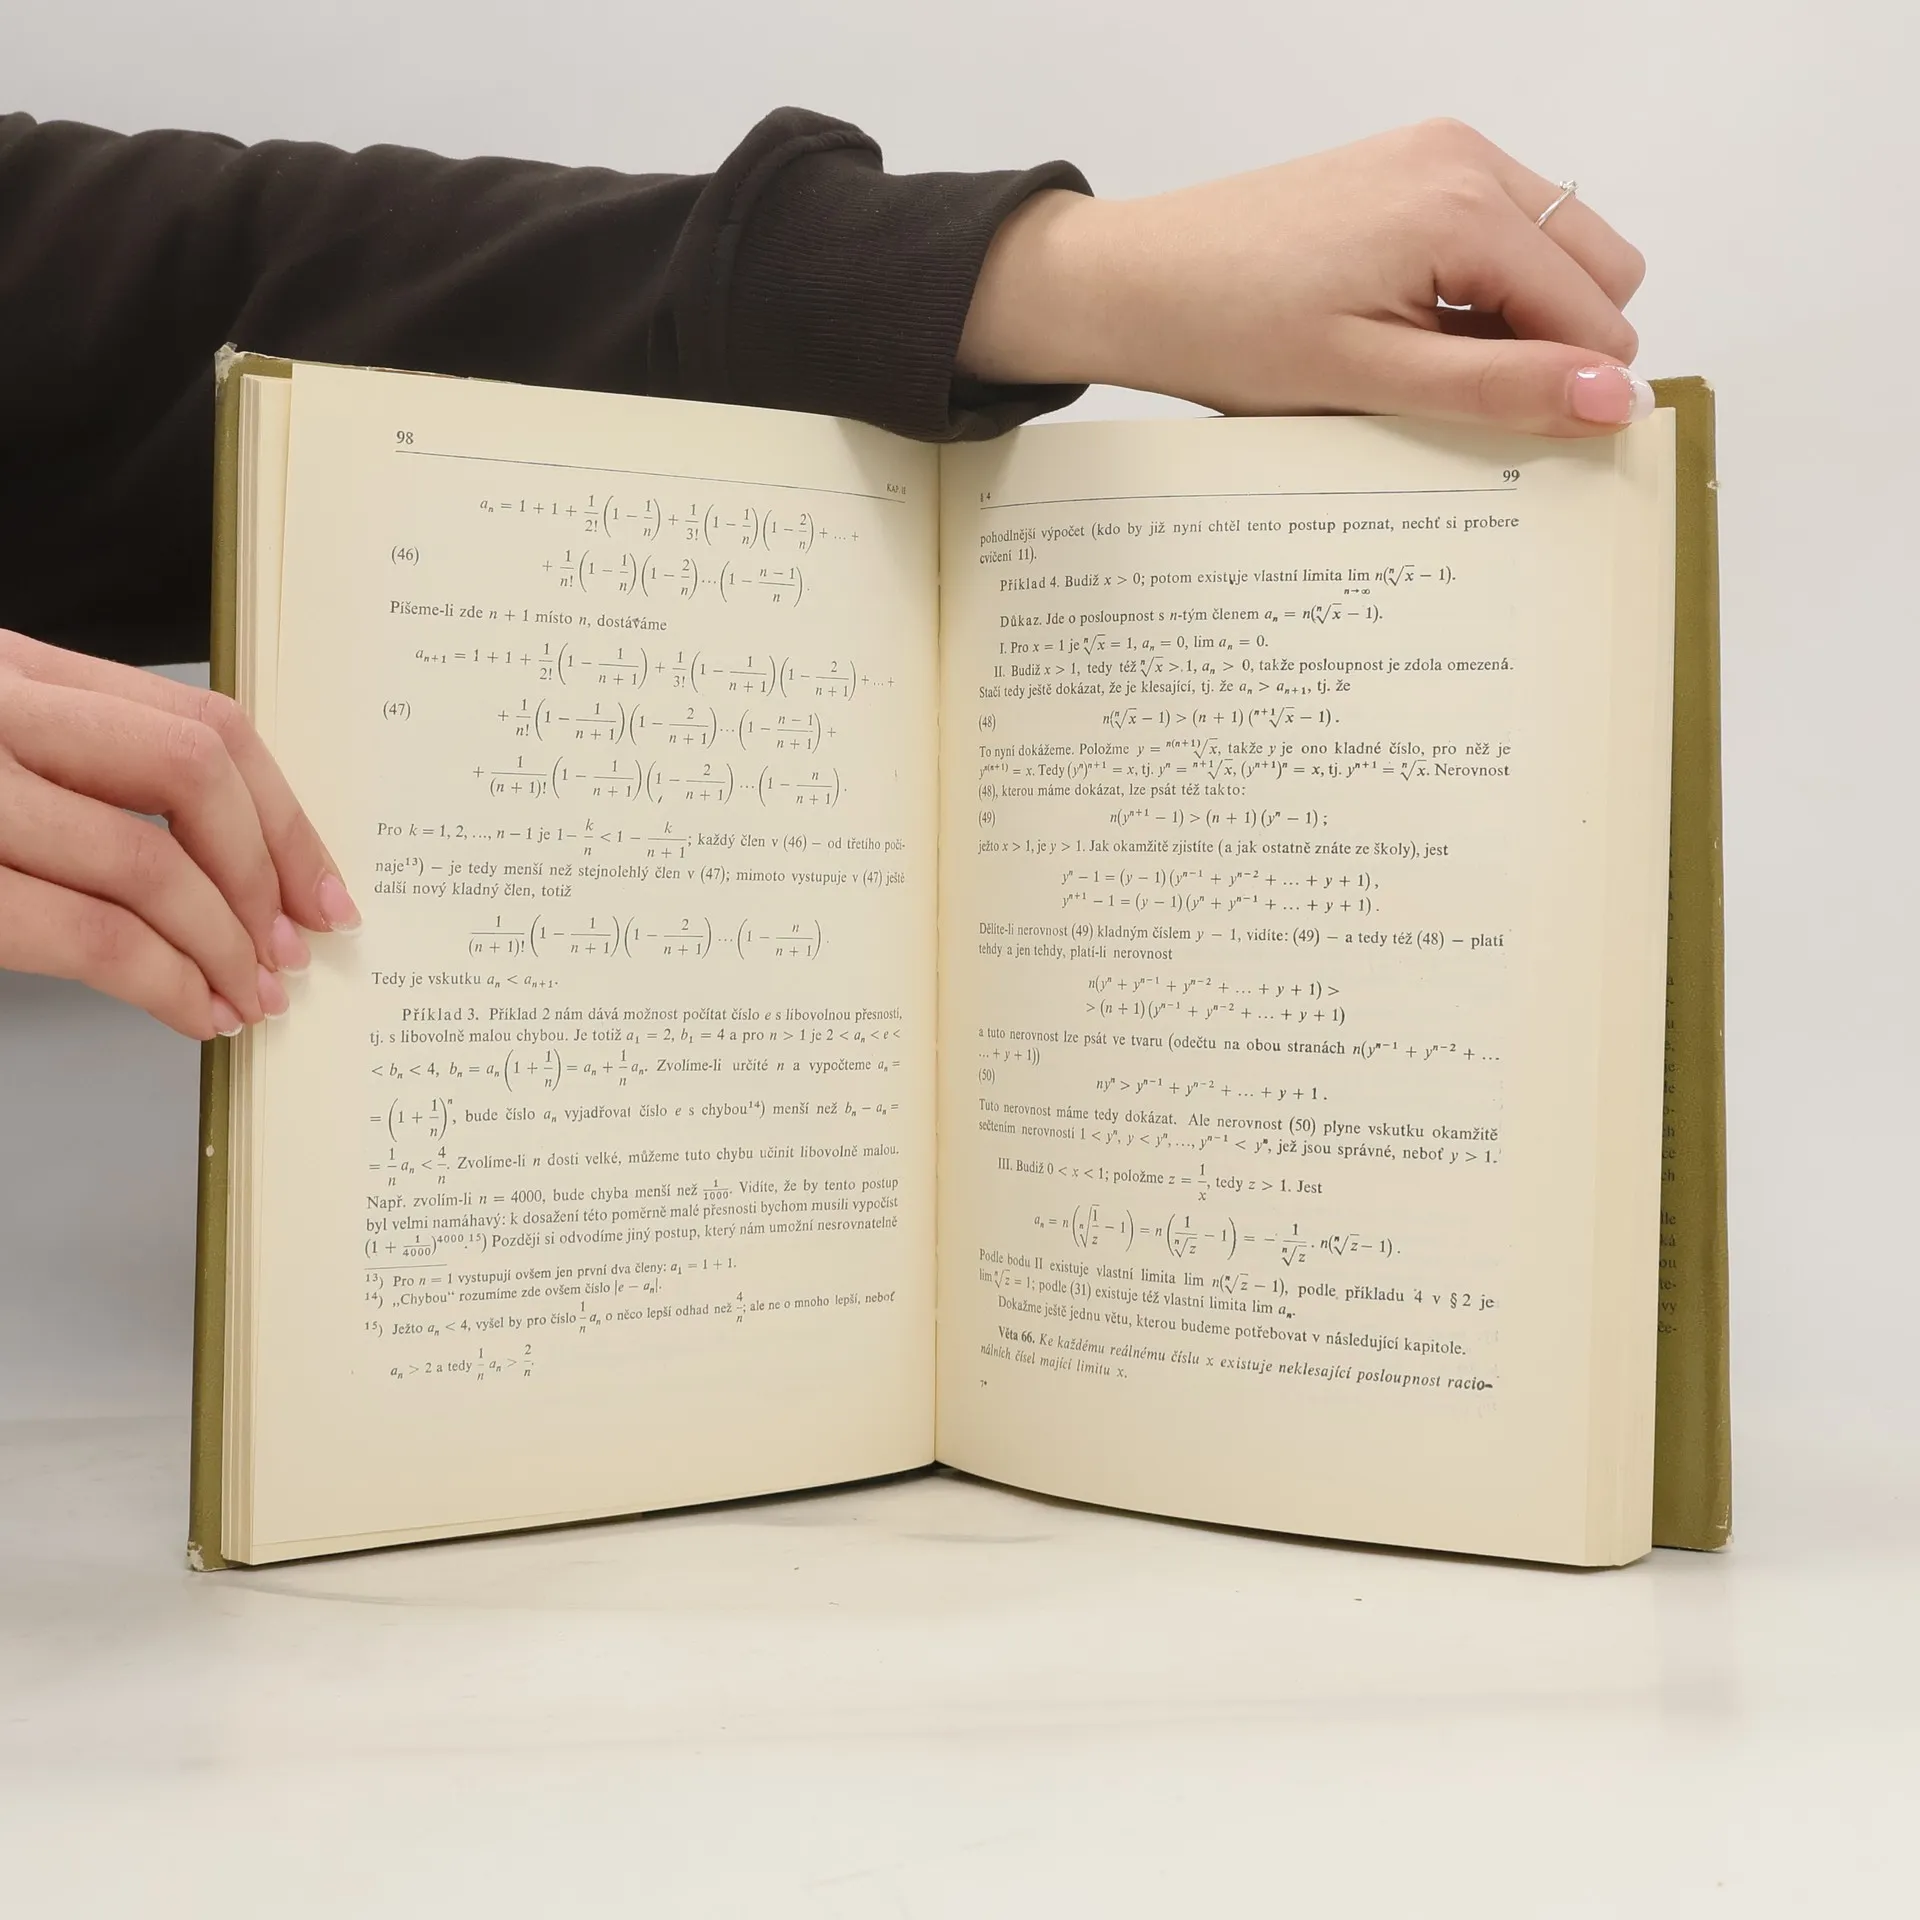 98
KAP. II
a_n = 1 + 1 + \frac{1}{2!}(1 - \frac{1}{n}) + \frac{1}{3!}(1 - \frac{1}{n})(1 - \frac{2}{n}) + ... +
(46) + \frac{1}{n!}(1 - \frac{1}{n})(1 - \frac{2}{n})...(1 - \frac{n - 1}{n}).
Píšeme-li zde n + 1 místo n, dostáváme
a_{n+1} = 1 + 1 + \frac{1}{2!}(1 - \frac{1}{n + 1}) + \frac{1}{3!}(1 - \frac{1}{n + 1})(1 - \frac{2}{n + 1}) + ... +
(47) + \frac{1}{n!}(1 - \frac{1}{n + 1})(1 - \frac{2}{n + 1})...(1 - \frac{n - 1}{n + 1}) +
+ \frac{1}{(n + 1)!}(1 - \frac{1}{n + 1})(1 - \frac{2}{n + 1})...(1 - \frac{n}{n + 1}).
Pro k = 1, 2, ..., n − 1 je 1 − \frac{k}{n} < 1 − \frac{k}{n + 1}; každý člen v (46) — od třetího počí-
naje¹³) — je tedy menší než stejnolehlý člen v (47); mimoto vystupuje v (47) ještě
další nový kladný člen, totiž
\frac{1}{(n + 1)!}(1 - \frac{1}{n + 1})(1 - \frac{2}{n + 1})...(1 - \frac{n}{n + 1}).
Tedy je vskutku a_n < a_{n+1}.
Příklad 3. Příklad 2 nám dává možnost počítat číslo e s libovolnou přesností,
tj. s libovolně malou chybou. Je totiž a_1 = 2, b_1 = 4 a pro n > 1 je 2 < a_n < e <
< b_n < 4, b_n = a_n(1 + \frac{1}{n}) = a_n + \frac{1}{n}a_n. Zvolíme-li určité n a vypočteme a_n =
= (1 + \frac{1}{n})^n, bude číslo a_n vyjadřovat číslo e s chybou¹⁴) menší než b_n − a_n =
= \frac{1}{n}a_n < \frac{4}{n}. Zvolíme-li n dosti velké, můžeme tuto chybu učinit libovolně malou.
Např. zvolím-li n = 4000, bude chyba menší než \frac{1}{1000}. Vidíte, že by tento postup
byl velmi namáhavý: k dosažení této poměrně malé přesnosti bychom musili vypočíst
(1 + \frac{1}{4000})^{4000}.¹⁵) Později si odvodíme jiný postup, který nám umožní nesrovnatelně
¹³) Pro n = 1 vystupují ovšem jen první dva členy: a_1 = 1 + 1.
¹⁴) „Chybou“ rozumíme zde ovšem číslo |e − a_n|.
¹⁵) Ježto a_n < 4, vyšel by pro číslo \frac{1}{n}a_n o něco lepší odhad než \frac{4}{n}; ale ne o mnoho lepší, neboť
a_n > 2 a tedy \frac{1}{n}a_n > \frac{2}{n}.
§ 4
99
pohodlnější výpočet (kdo by již nyní chtěl tento postup poznat, nechť si probere
cvičení 11).
Příklad 4. Budiž x > 0; potom existuje vlastní limita \lim_{n→∞} n(\sqrt[n]{x} − 1).
Důkaz. Jde o posloupnost s n-tým členem a_n = n(\sqrt[n]{x} − 1).
I. Pro x = 1 je \sqrt[n]{x} = 1, a_n = 0, lim a_n = 0.
II. Budiž x > 1, tedy též \sqrt[n]{x} > 1, a_n > 0, takže posloupnost je zdola omezená.
Stačí tedy ještě dokázat, že je klesající, tj. že a_n > a_{n+1}, tj. že
(48) n(\sqrt[n]{x} − 1) > (n + 1)(\sqrt[n+1]{x} − 1).
To nyní dokážeme. Položme y = \sqrt[n(n+1)]{x}, takže y je ono kladné číslo, pro něž je
y^{n(n+1)} = x. Tedy (y^n)^{n+1} = x, tj. y^n = \sqrt[n+1]{x}, (y^{n+1})^n = x, tj. y^{n+1} = \sqrt[n]{x}. Nerovnost
(48), kterou máme dokázat, lze psát též takto:
(49) n(y^{n+1} − 1) > (n + 1)(y^n − 1);
ježto x > 1, je y > 1. Jak okamžitě zjistíte (a jak ostatně znáte ze školy), jest
y^n − 1 = (y − 1)(y^{n−1} + y^{n−2} + ... + y + 1),
y^{n+1} − 1 = (y − 1)(y^n + y^{n−1} + ... + y + 1).
Dělíte-li nerovnost (49) kladným číslem y − 1, vidíte: (49) — a tedy též (48) — platí
tehdy a jen tehdy, platí-li nerovnost
n(y^n + y^{n−1} + y^{n−2} + ... + y + 1) >
> (n + 1)(y^{n−1} + y^{n−2} + ... + y + 1)
a tuto nerovnost lze psát ve tvaru (odečtu na obou stranách n(y^{n−1} + y^{n−2} + ...
... + y + 1))
(50) ny^n > y^{n−1} + y^{n−2} + ... + y + 1.
Tuto nerovnost máme tedy dokázat. Ale nerovnost (50) plyne vskutku okamžitě
sečtením nerovností 1 < y^n, y < y^n, ..., y^{n−1} < y^n, jež jsou správné, neboť y > 1.
III. Budiž 0 < x < 1; položme z = \frac{1}{x}, tedy z > 1. Jest
a_n = n(\sqrt[n]{\frac{1}{z}} − 1) = n(\frac{1}{\sqrt[n]{z}} − 1) = −\frac{1}{\sqrt[n]{z}} . n(\sqrt[n]{z} − 1).
Podle bodu II existuje vlastní limita lim n(\sqrt[n]{z} − 1), podle příkladu 4 v § 2 je
lim \sqrt[n]{z} = 1; podle (31) existuje též vlastní limita lim a_n.
Dokažme ještě jednu větu, kterou budeme potřebovat v následující kapitole.
Věta 66. Ke každému reálnému číslu x existuje neklesající posloupnost racio-
nálních čísel mající limitu x.
7*